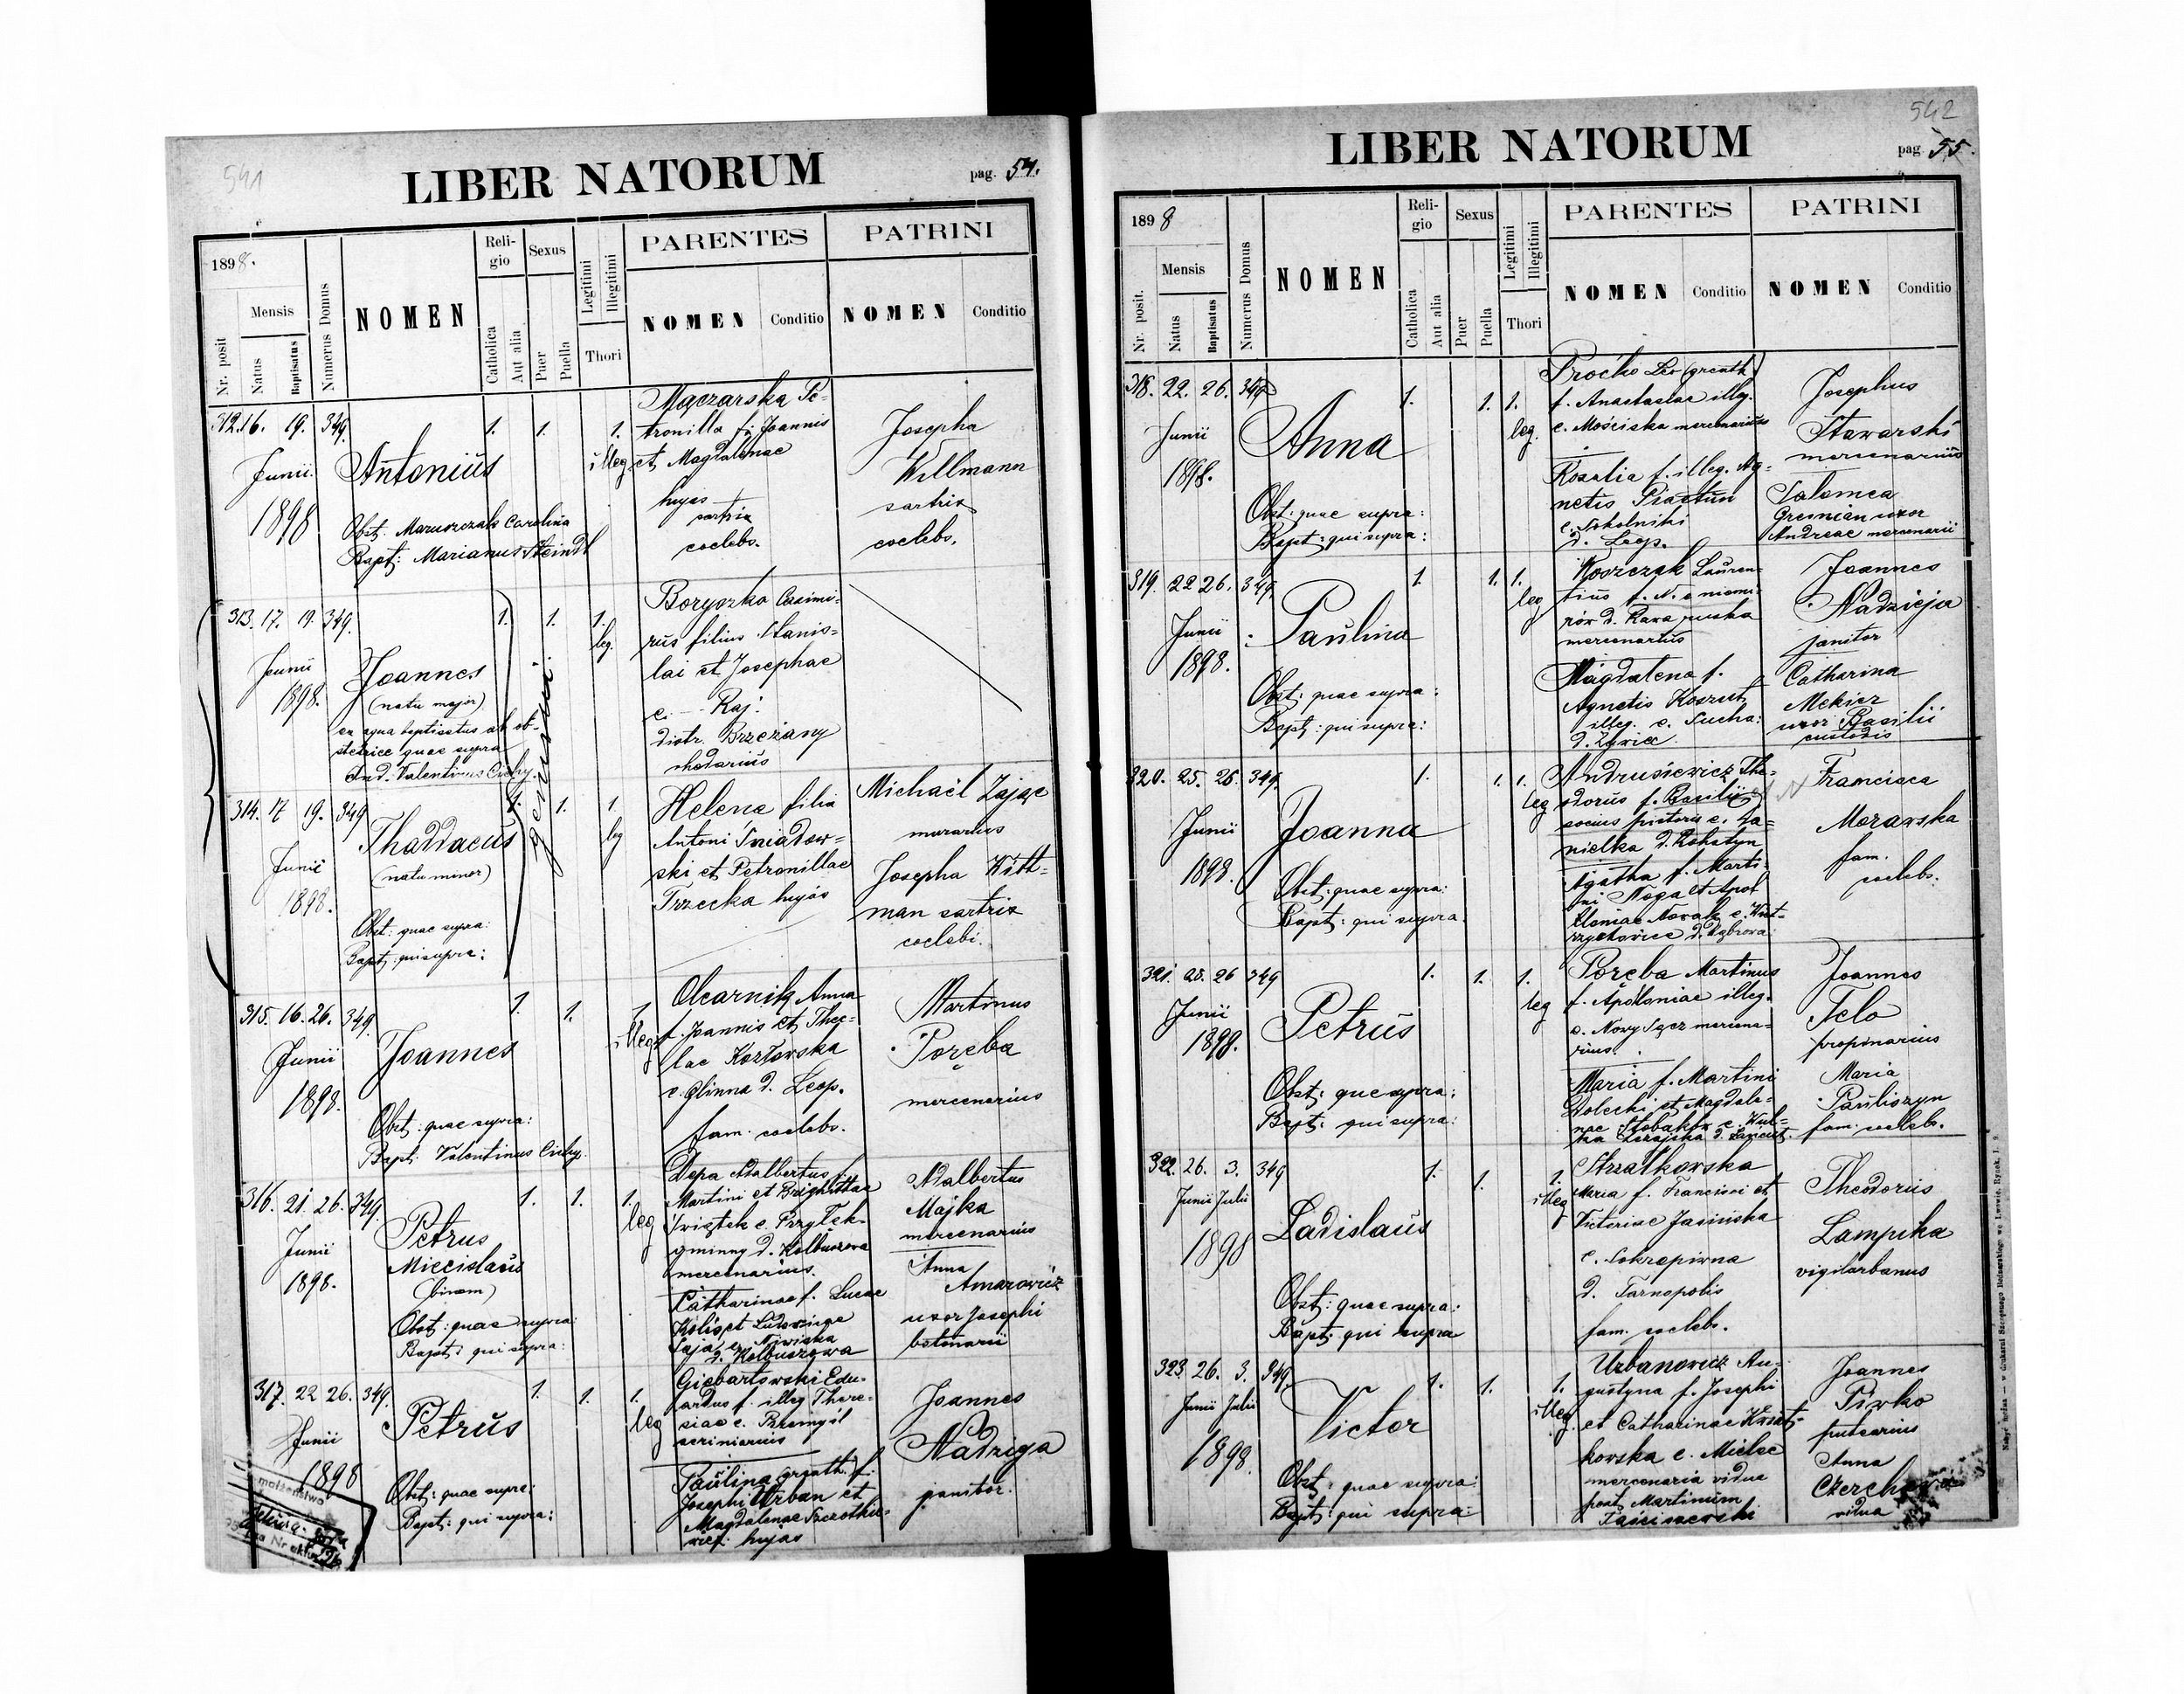 541
LIBER NATORUM
pag. 54.
1898.
Mensis
Nr. posit
Natus
Baptisatus
Numerus Domus
NOMEN
Reli-
gio
Catholica
Aut alia
Sexus
Puer
Puella
Legitimi
Illegitimi
Thori
PARENTES
NOMEN
Conditio
PATRINI
NOMEN
Conditio
312. 16. 19. 349. 1. 1. 1.
Junii
illeg
1898
Antonius
Obst. Maruszczak Carolina
Bapt: Marianus Steindl
Mączarska Pe-
tronilla f. Joannis
et Magdalenae
hujas
sartrix
coelebs.
Josepha
Willmann
sartrix
coelebs.
313. 17. 19. 349. 1. 1. 1.
Junii
leg.
1898.
Joannes
(natu major)
ex aqua baptisatus ab ob-
stetrice quae supra
Ind. Valentinus Cichy.
gemini.
Boryszko Casimi-
rus filius Stanis-
lai et Josephae
e. Raj.
distr. Brzeżany
rhedarius
314. 17 19. 349 1. 1. 1.
Junii
leg
1898.
Thaddaeus
(natu minor)
Obst: quae supra:
Bapt: qui supra:
Helena filia
Antoni Śniadow-
ski et Petronillae
Trzecka hujas
Michaël Zając
murarius
Josepha Witt-
man sartrix
coelebs.
315. 16. 26. 349. 1. 1. 1.
Junii
illeg
1898.
Joannes
Obst: quae supra:
Bapt: Valentinus Cichy.
Olearnik Anna
f. Joannis et Thec-
lae Kozłowska
e. Glinna d. Leop.
fam. coelebs.
Martinus
Poręba
mercenarius
316. 21. 26. 349. 1. 1. 1.
Junii
leg
1898.
Petrus
Miecislaus
(binom)
Obst: quae supra:
Bapt: qui supra:
Depa Adalbertus f.
Martini et Brighittae
Świątek e. Przyłęk
gminny d. Kolbuszowa
mercenarius.
Catharinae f. Lucae
Kolis et Ludovicae
Saja e. Niwiska
d. Kolbuszowa
Adalbertus
Majka
mercenarius
Anna
Amarowicz
uxor Josephi
betonarii
317. 22 26. 349. 1. 1. 1.
Junii
leg
1898
Petrus
Obst: quae supra:
Bapt: qui supra:
Giebartowski Edu-
ardus f. illeg There-
siae e. Przemyśl
scriniarius
Paulina (gr.cath.) f.
Josephi Urban et
Magdalenae
hujas
Joannes
Nadziga
janitor.
małżeństwo
542
LIBER NATORUM
pag. 55.
1898
Mensis
Nr. posit.
Natus
Baptisatus
Numerus Domus
NOMEN
Reli-
gio
Catholica
Aut alia
Sexus
Puer
Puella
Legitimi
Illegitimi
Thori
PARENTES
NOMEN
Conditio
PATRINI
NOMEN
Conditio
318. 22. 26. 349 1. 1. 1.
Junii
leg.
1898.
Anna
Obst: quae supra:
Bapt: qui supra:
Proćko Leo (gr.cath.)
f. Anastasiae illeg.
e. Mościska mercenarius
Rosalia f. illeg. Ag-
netis Piastun
e. Sokolniki
d. Leop.
Josephus
Stawarski
mercenarius
Salomea
uxor
Andreae mercenarii
319. 22 26. 349. 1. 1. 1.
Junii
leg
1898.
Paulina
Obst: quae supra:
Bapt: qui supra:
Koszczak Lauren-
tius f. N. e niemi-
rów d. Rawa ruska
mercenarius
Magdalena f.
Agnetis Koszut
illeg. e. Sucha:
d. Żywiec
Joannes
Nadzieja
janitor
Catharina
Mekier
uxor Basilii
custodis
320. 25. 26. 349. 1. 1. 1.
Junii
leg
1898.
Joanna
Obst: quae supra:
Bapt: qui supra.
Andrusiewicz The-
odorus f. Basilii
socius pistoris e. Da-
nielka d. Rohatyn
Agatha f. Marti-
ni Noga et Apol
loniae Nowak e.
d. Dąbrowa
Francisca
Morawska
fam.
coelebs.
321. 25. 26 349 1. 1. 1.
Junii
leg
1898.
Petrus
Obst: quae supra:
Bapt: qui supra:
Poręba Martinus
f. Apolloniae illeg.
e. Nowy Sącz mercena-
rius.
Maria f. Martini
Dolecki et Magdale-
nae Stobakow e. Wul-
ka d. Łańcut
Joannes
Telo
propinarius
Maria
Pauliszyn
fam. coelebs.
322. 26. 3. 349 1. 1. 1.
Junii Julii
illeg
1898
Ladislaus
Obst: quae supra:
Bapt: qui supra
Strzałkowska
Maria f. Francisci et
Victoriae Jasińska
e. Pokropiwna
d. Tarnopolis
fam. coelebs.
Theodorus
Lampika
vigil urbanus
323. 26. 3. 349. 1. 1. 1.
Junii Julii
illeg.
1898.
Victor
Obst: quae supra:
Bapt: qui supra:
Urbanowicz Au-
gustyna f. Josephi
et Catharinae Kwiat-
kowska e. Mielec
mercenaria vidua
post Martinum
Joannes
Pirko
putearius
Anna
vidua